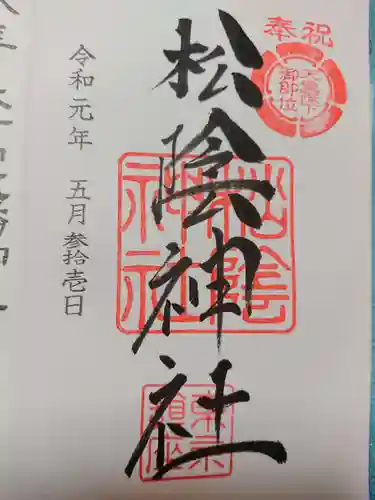 奉祝
天皇陛下
御即位
松陰神社
松陰
神社
東京
世田谷
令和元年 五月参拾壱日